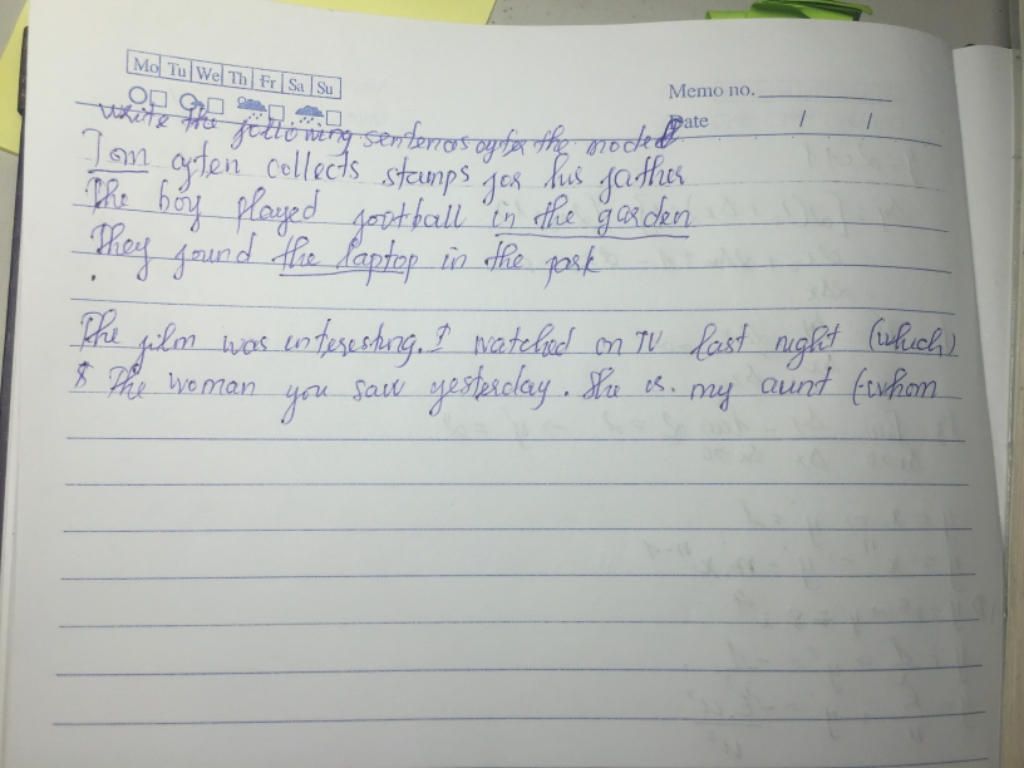 Mo Tu We Th Fr Sa Su
Memo no.
Date / /
write the following sentences after the model
Tom often collects stamps for his father
The boy played football in the garden
They found the laptop in the park
The film was interesting. I watched on TV last night (which)
The woman you saw yesterday. She is. my aunt (whom